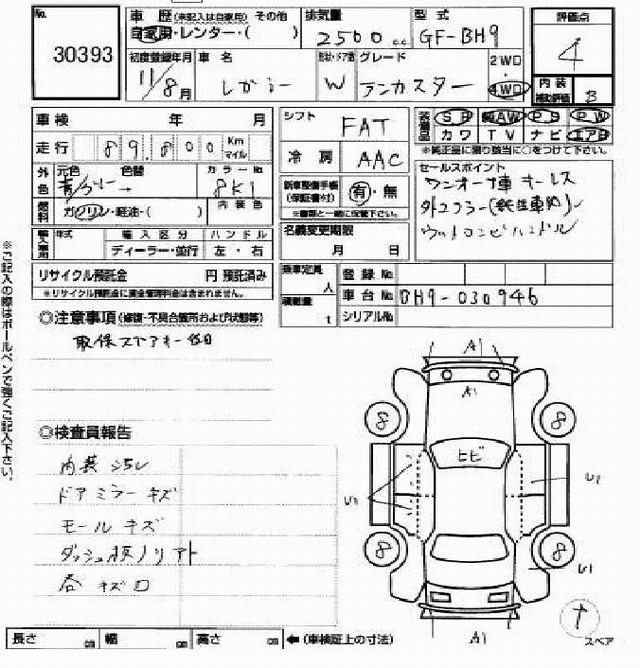 No. 30393
車歴 (未記入は自家用) その他
自家用・レンター・( )
排気量
2500 cc
型式
GF-BH9
評価点
4
初度登録年月
11/8月
車名
レガシー
形状・ドア数
W
グレード
ランカスター
2WD
・
4WD
内装
補助評価
B
車検 年 月
走行 89,800 Km マイル
外色 元色 色替 カラーNo.
8K1
燃料 ガソリン・軽油・( ) 内装色
輸入車用 年式 輸入区分 ハンドル
ディーラー・並行 左・右
リサイクル預託金 円 預託済み
※リサイクル預託金に資金管理料金は含まれません。
シフト FAT
冷房 AAC
新車整備手帳
(保証書付)
有・無
※書類と一緒に保管下さい。
名義変更期限
月 日
乗車定員 人
積載量 t
登録No.
車台No. BH9-030946
シリアルNo.
装備品 SR AW PS PW
カワ TV ナビ エアB
※純正品に限り該当に○をつけて下さい。
セールスポイント
ワンオーナ車 キーレス
ウッドコンビハンドル
◎注意事項 (修復・不具合箇所および状態等)
取保スペアキー後日
◎検査員報告
内装 ヨゴレ
ドアミラーキズ
モールキズ
各キズ
A1
A1
ヒビ
8
8
8
8
U1
U1
U1
A1
スペア
長さ cm 幅 cm 高さ cm ←(車検証上の寸法)
※ご記入の際はボールペンで強くご記入下さい。